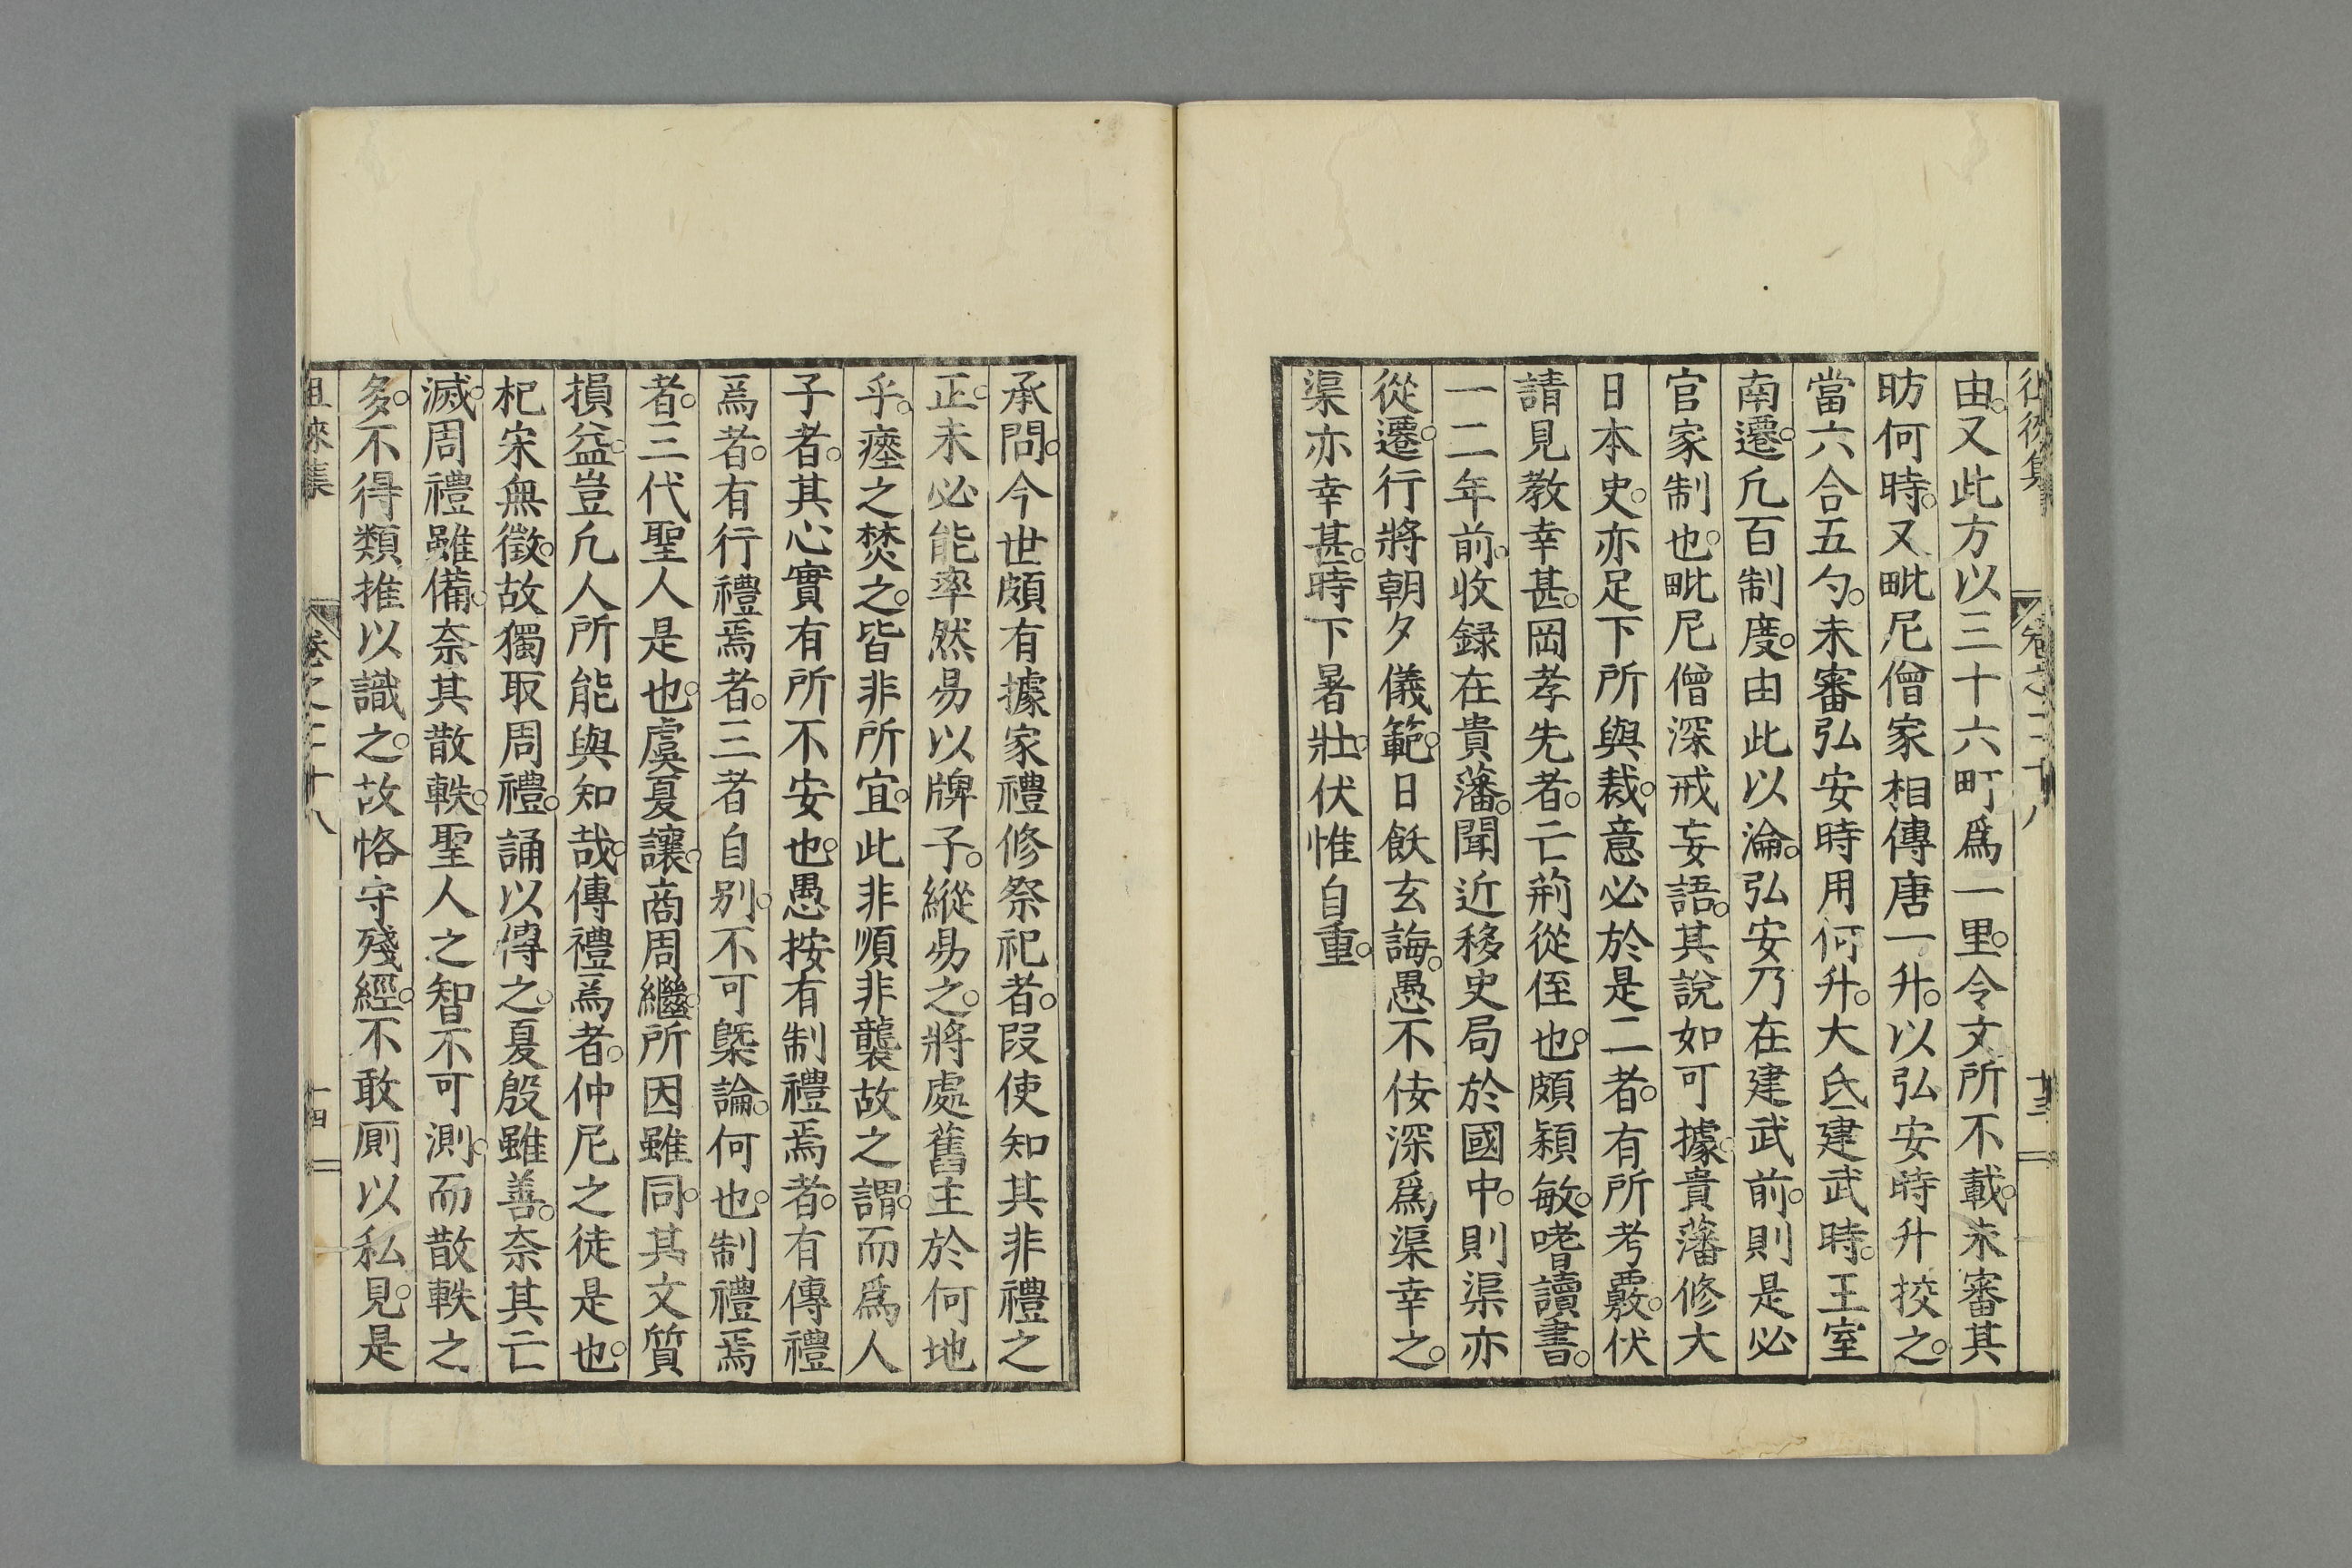 由。又此方以三十六町爲一里。令文所不載。未審其
昉何時。又毗尼僧家相傳唐一升。以弘安時升挍之。
當六合五勺。未審弘安時用何升。大氐建武時。王室
南遷。凡百制度。由此以淪。弘安乃在建武前。則是必
官家制也。毗尼僧深戒妄語。其說如可據。貴藩修大
日本史。亦足下所與裁。意必於是二者。有所考覈。伏
請見教幸甚。岡孝先者。亡荊從侄也。頗穎敏。嗜讀書。
一二年前。收録在貴藩。聞近移史局於國中。則渠亦
從遷。行將朝夕儀範。日飫玄誨。愚不佞深爲渠幸之。
渠亦幸甚。時下暑壯。伏惟自重。
承問。今世頗有據家禮修祭祀者。叚使知其非禮之
正。未必能率然易以牌子。縱易之。將處舊主於何地
乎。瘞之焚之。皆非所宜。此非順非襲故之謂。而爲人
子者。其心實有所不安也。愚按有制禮焉者。有傳禮
焉者。有行禮焉者。三者自別。不可槩論。何也。制禮焉
者。三代聖人是也。虞夏讓。商周繼。所因雖同。其文質
損益。豈凡人所能與知哉。傳禮焉者。仲尼之徒是也。
杞宋無徵。故獨取周禮。誦以傳之。夏殷雖善。奈其亡
滅。周禮雖備。奈其散軼。聖人之智不可測。而散軼之
多。不得類推以識之。故恪守殘經。不敢厠以私見。是
徂徠集
卷之二十八
十四